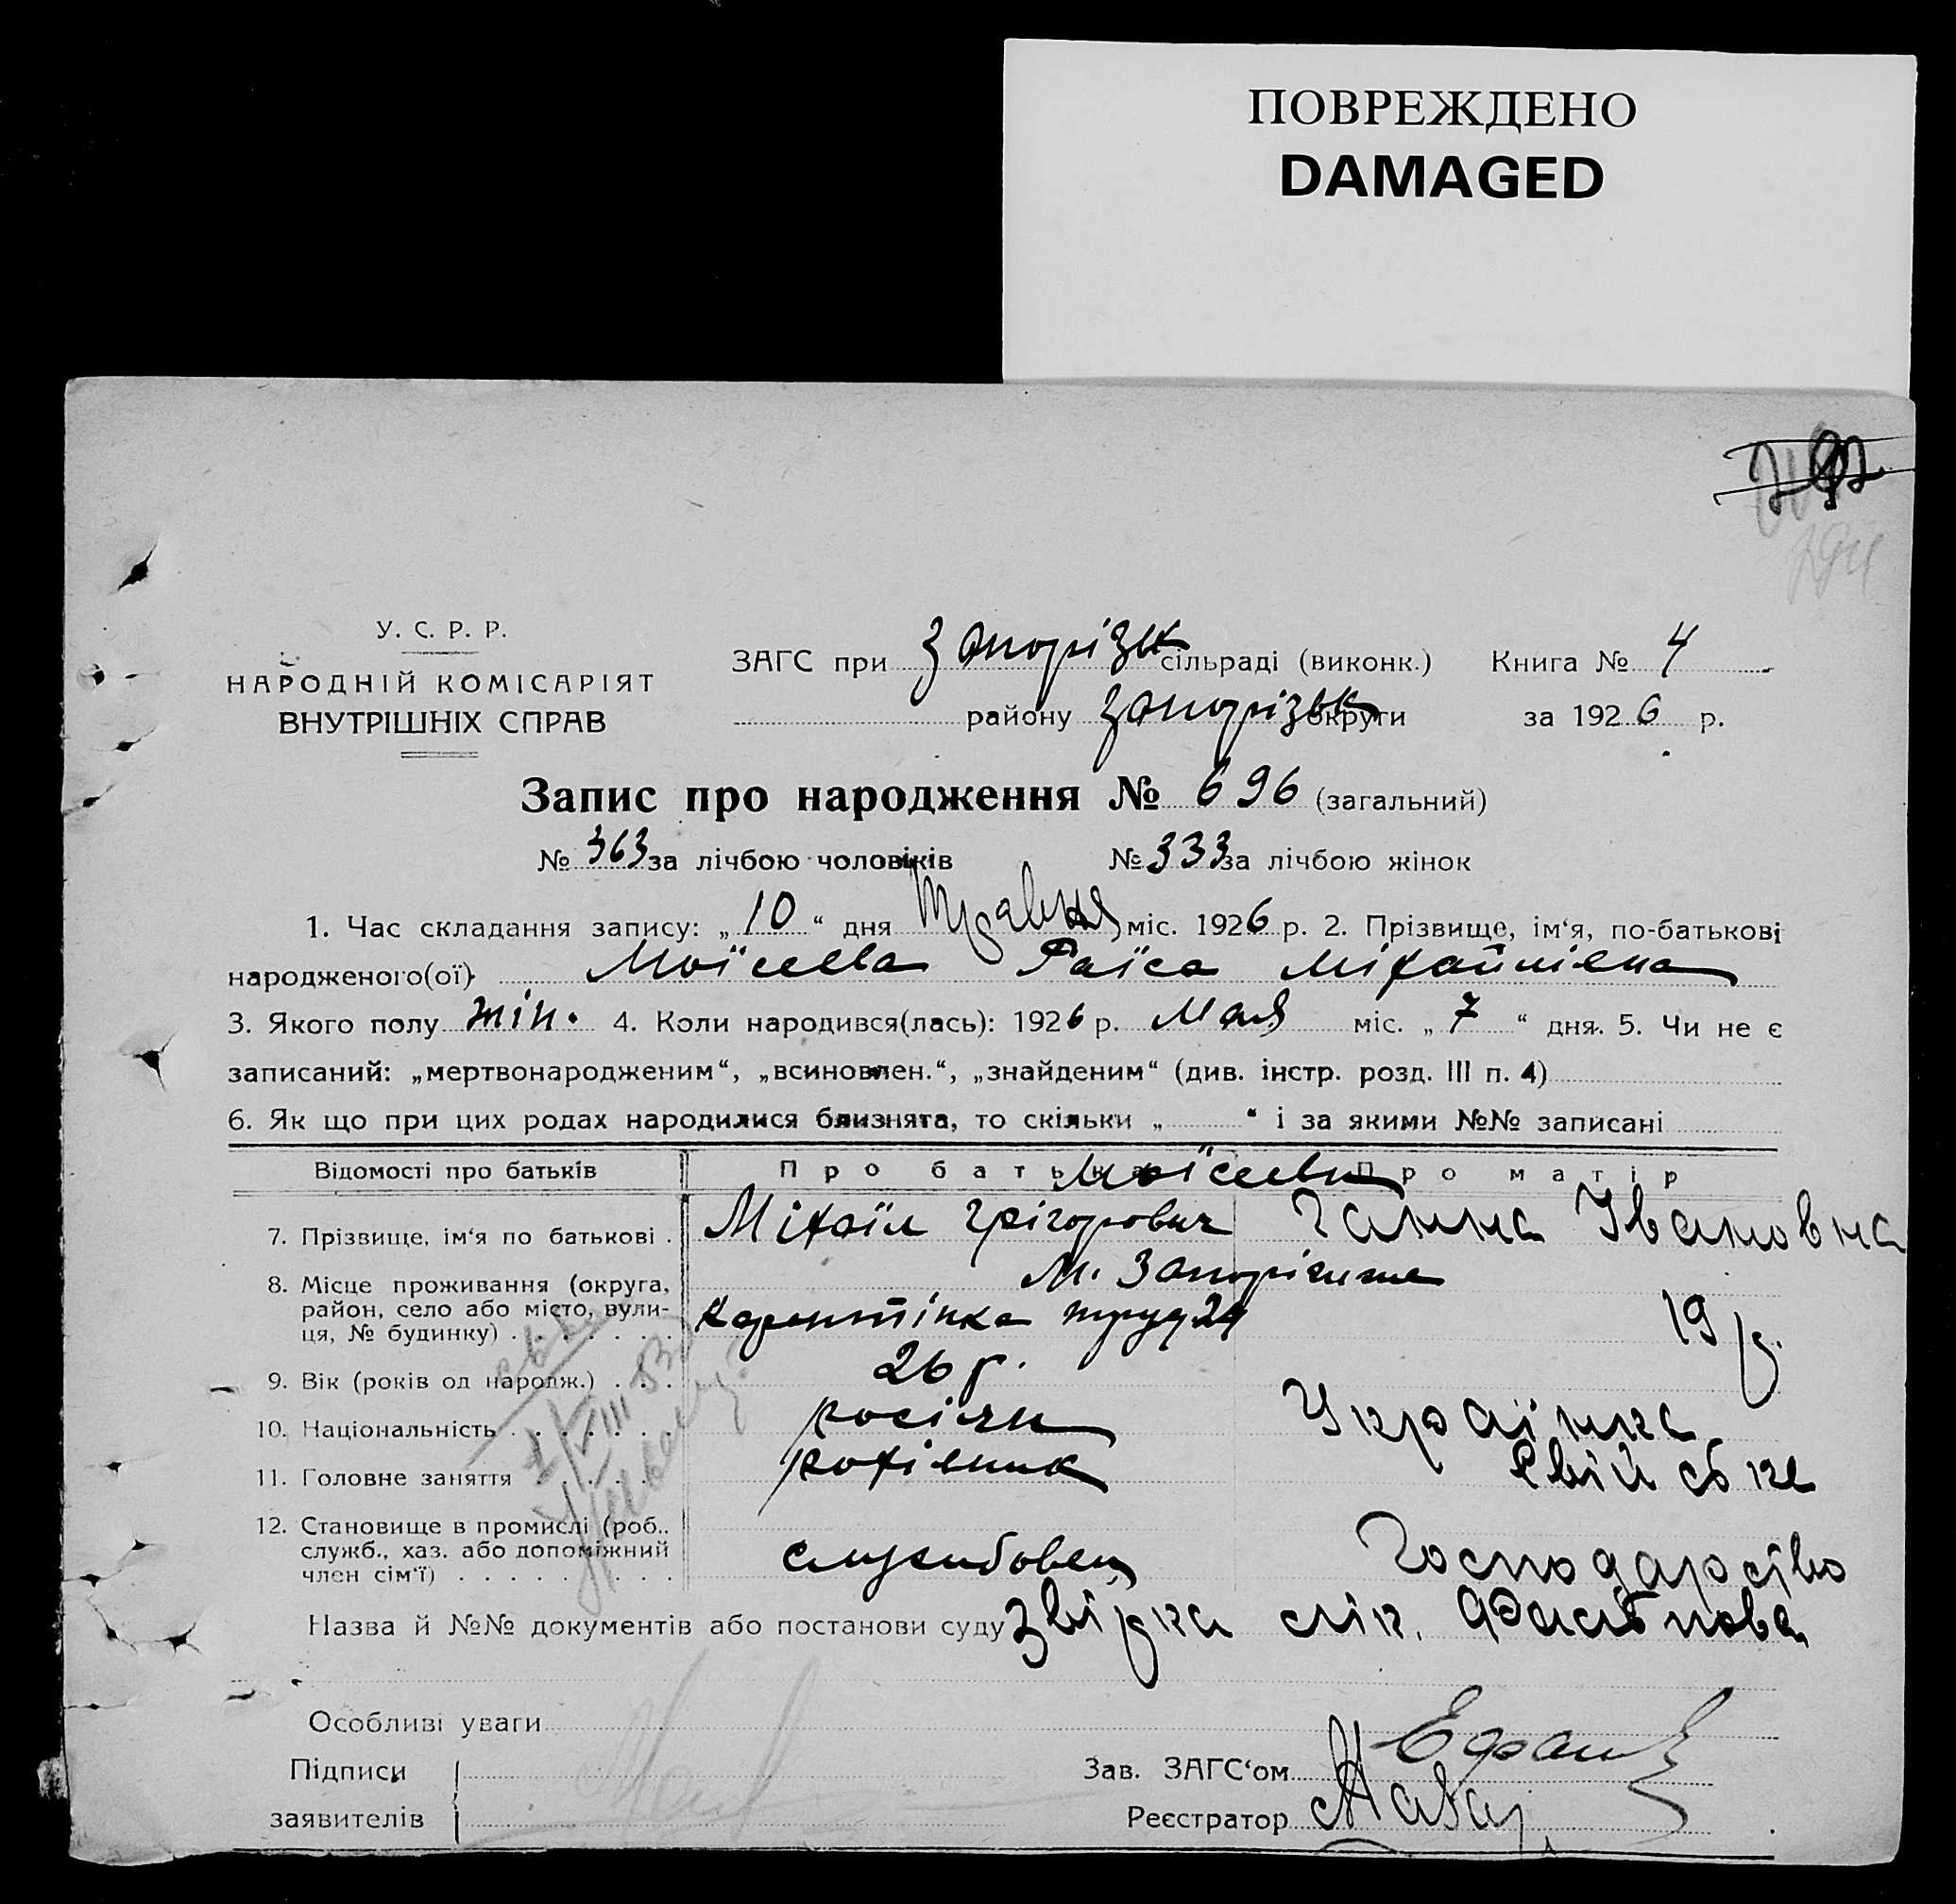 ПОВРЕЖДЕНО
DAMAGED
У. С. Р. Р.
НАРОДНІЙ КОМІСАРІЯТ
ВНУТРІШНІХ СПРАВ
ЗАГС при Запорізк сільраді (виконк.) Книга № 4
району Запорізьк округи за 1926 р.
Запис про народження № 696 (загальний)
№ 363 за лічбою чоловіків № 333 за лічбою жінок
1. Час складання запису: „10“ дня Травня міс. 1926 р. 2. Прізвище, ім‘я, по-батькові
народженого(ої) Моїсеєва Раїса Міхайлівна
3. Якого полу жін. 4. Коли народився(лась): 1926 р. Мая міс. „7“ дня. 5. Чи не є
записаний: „мертвонародженим“, „всиновлен.“, „знайденим“ (див. інстр. розд. III п. 4)
6. Як що при цих родах народилися близнята, то скільки „ “ і за якими №№ записані
Відомості про батьків Про батька Про матір
Моїсеєви
7. Прізвище, ім‘я по батькові . Міхаїл Грігорович Ганна Івановна
8. Місце проживання (округа, район, село або місто, вулиця, № будинку) . . . . . . . М. Запоріжже
Карантінка 24
9. Вік (років од народж.) . . . 26 р. 19 р.
10. Національність . . . . . . росіян Українка
11. Головне заняття . . . . робівник
12. Становище в промислі (роб.. служб., хаз. або допоміжний член сім‘ї) . . . . . . . . . службовец Господарство
Назва й №№ документів або постанови суду Звірка лік.
Особливі уваги
Підписи
заявителів
Зав. ЗАГС‘ом
Реєстратор